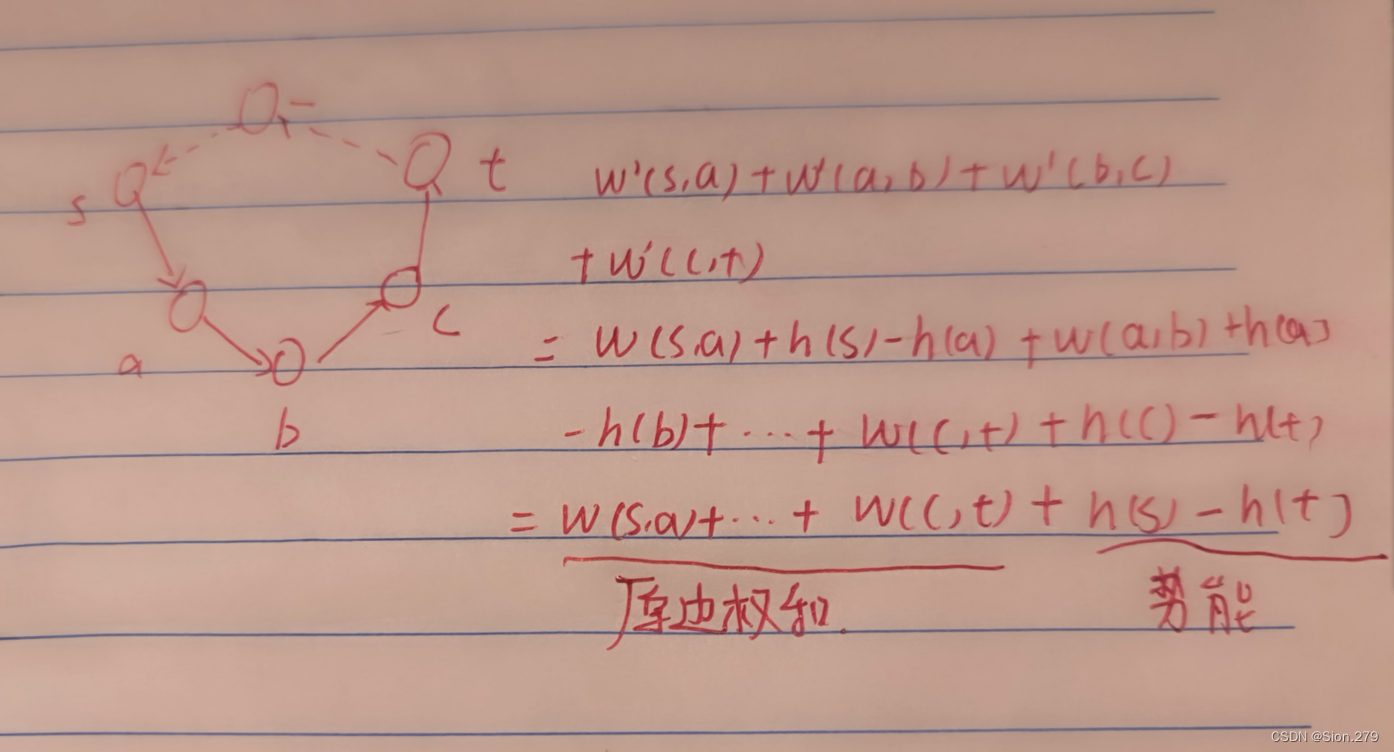 s
t
a
b
c
w'(s,a)+w'(a,b)+w'(b,c)
+w'(c,t)
= w(s,a)+h(s)-h(a)+w(a,b)+h(a)
-h(b)+...+w(c,t)+h(c)-h(t)
= w(s,a)+...+w(c,t)+h(s)-h(t)
原边权和. 势能
CSDN @Sion.279